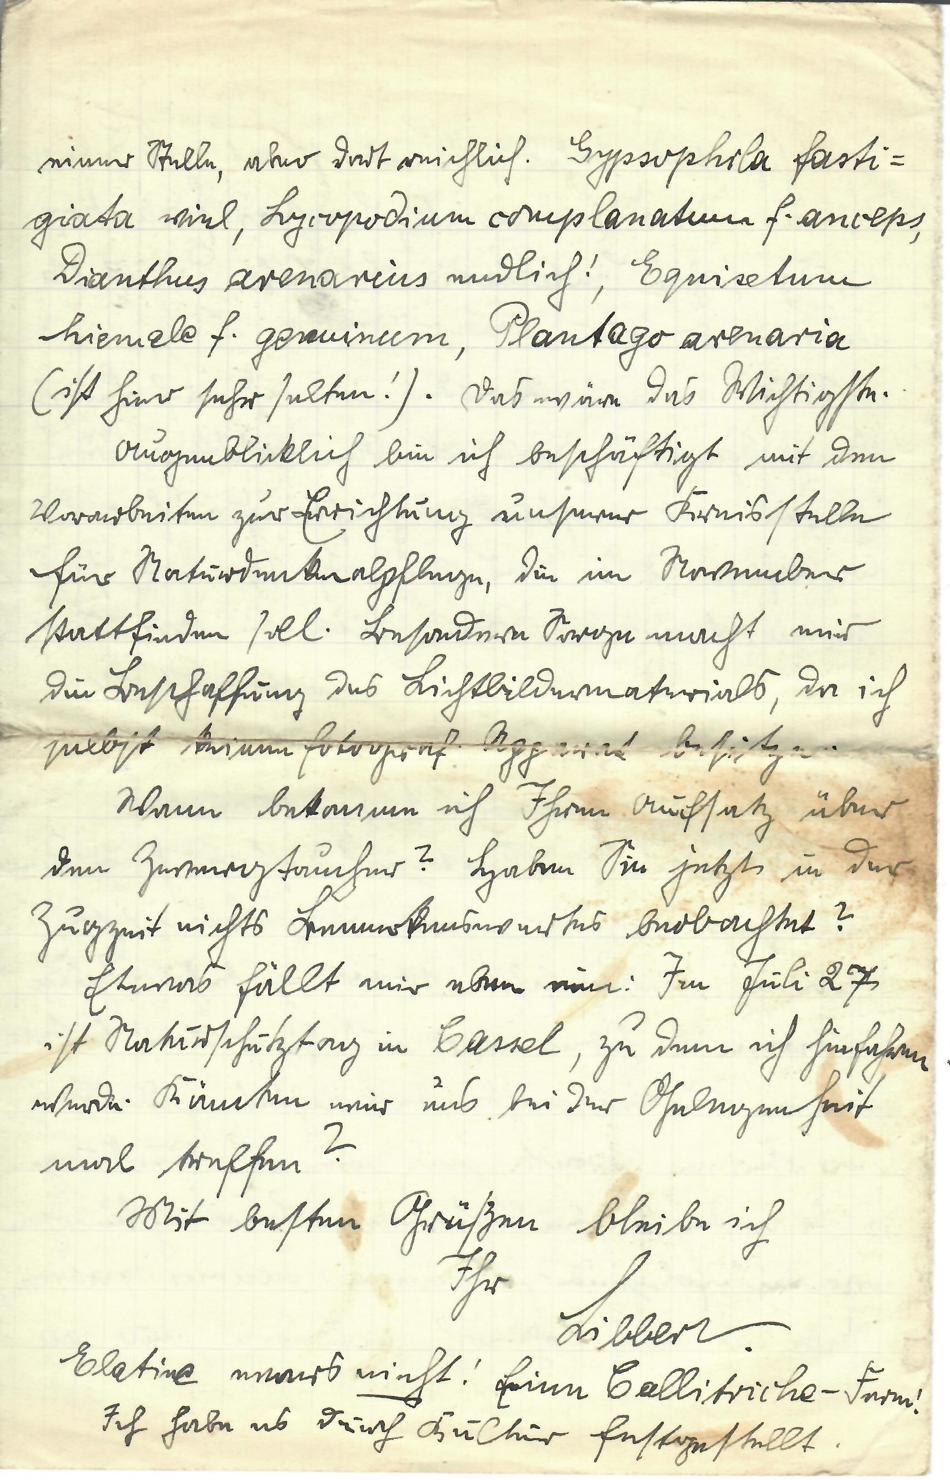 einer Stelle, aber dort reichlich. Gypsophila fasti=
giata viel, Lycopodium complanatum f. anceps,
Dianthus arenarius endlich!, Equisetum
hiemale f. geminum, Plantago arenaria
(ist hier sehr selten!). Das wäre das Wichtigste.
Augenblicklich bin ich beschäftigt mit den
Vorarbeiten zur Errichtung unserer Kreisstelle
für Naturdenkmalpflege, die im November
stattfinden soll. Besondere Sorge macht mir
die Beschaffung des Lichtbildermaterials, da ich
selbst keinen fotograf. Apparat besitze.
Wann bekomme ich Ihren Aufsatz über
den Zwergtaucher? Haben Sie jetzt in der
Zugzeit nichts Bemerkenswertes beobachtet?
Etwas fällt mir eben ein: Im Juli 27
ist Naturschutztag in Cassel, zu dem ich hinfahren
werde. Könnten wir uns bei der Gelegenheit
mal treffen?
Mit besten Grüßen bleibe ich
Ihr
Libbert.
Elatine wars nicht! Eine Callitriche-Form!
Ich habe es durch Kultur festgestellt.